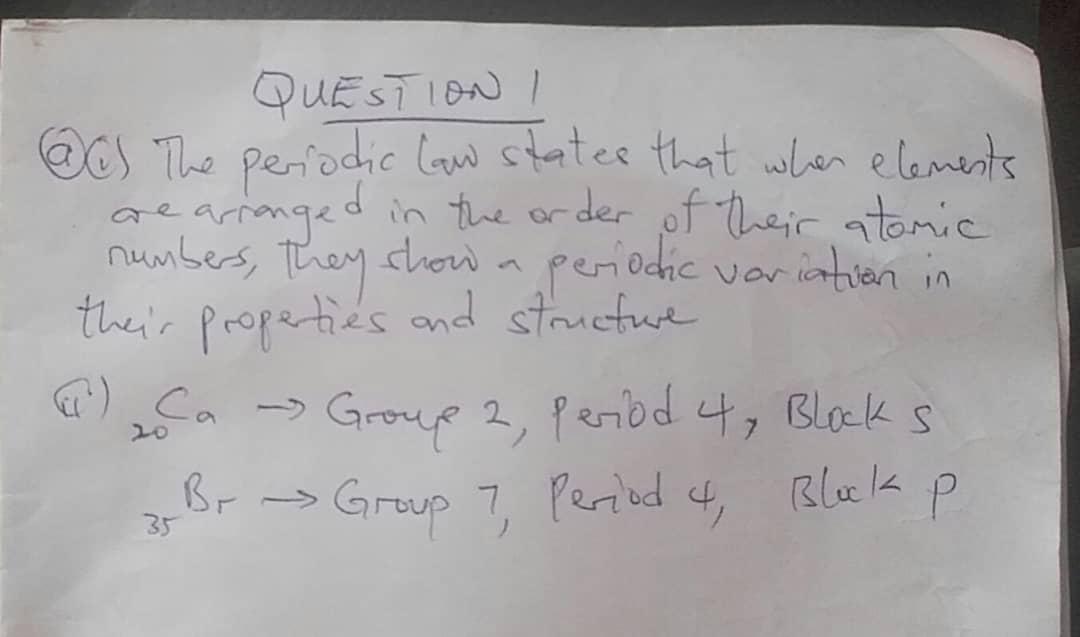 QUESTION 1
(a)(i) The periodic law states that when elements
are arranged in the order of their atomic
numbers, they show a periodic variation in
their properties and structure
(ii) ₂₀Ca → Group 2, Period 4, Block s
₃₅Br → Group 7, Period 4, Block p